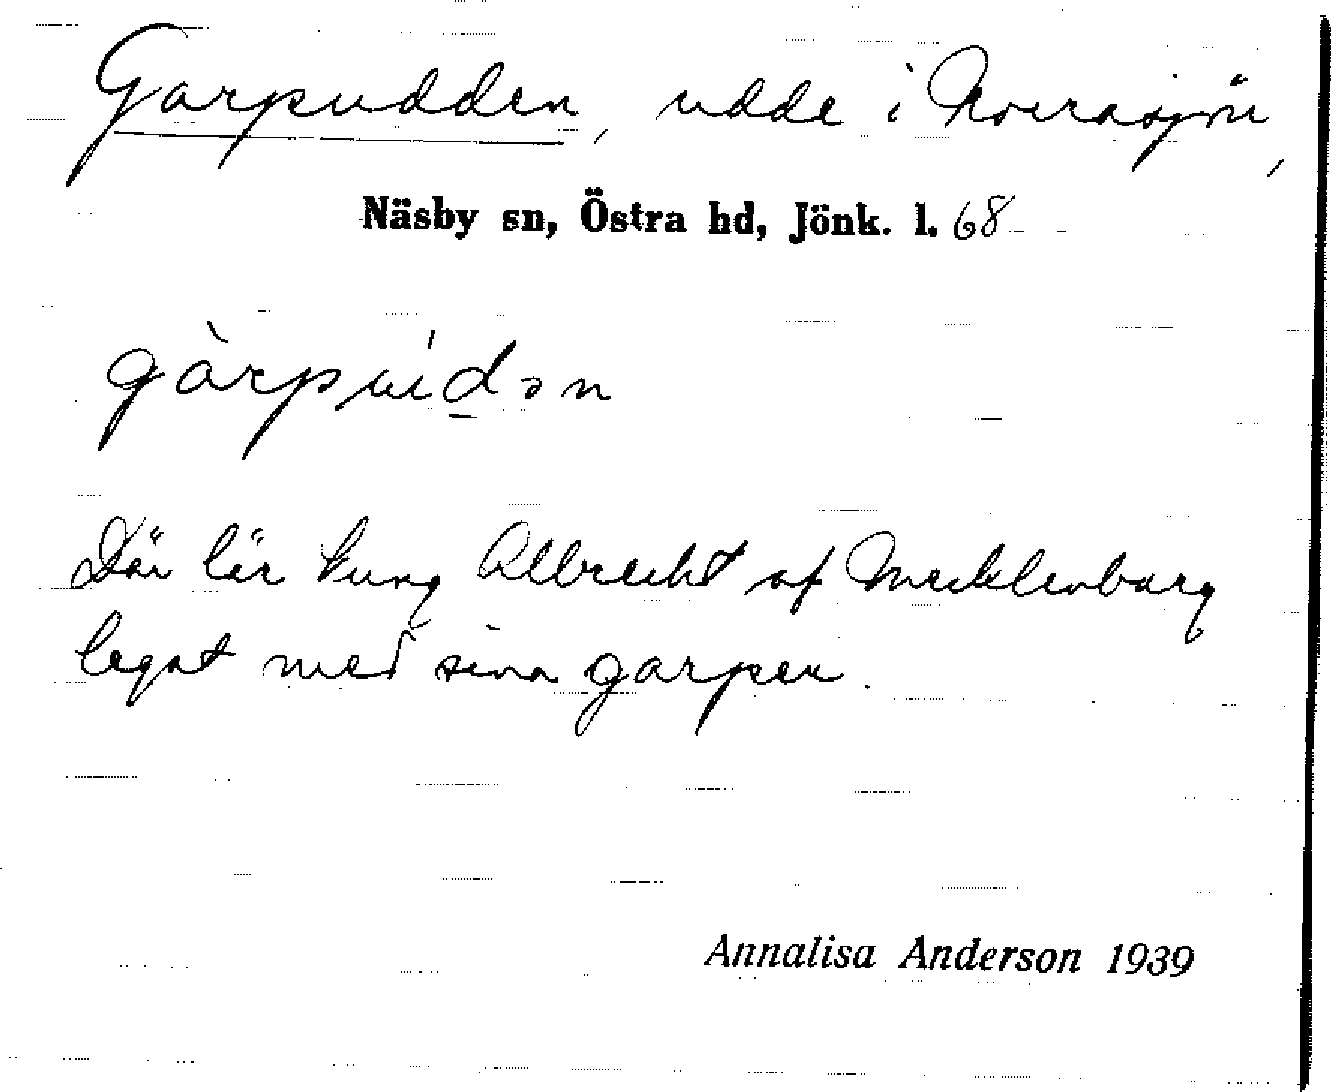 Garpudden, udde i Norrasjön,
Näsby sn, Östra hd, Jönk. l. 68
gàrpúd̲ən
Där lär kung Albrecht af Mecklenburg
legat med sina garper.
Annalisa Anderson 1939